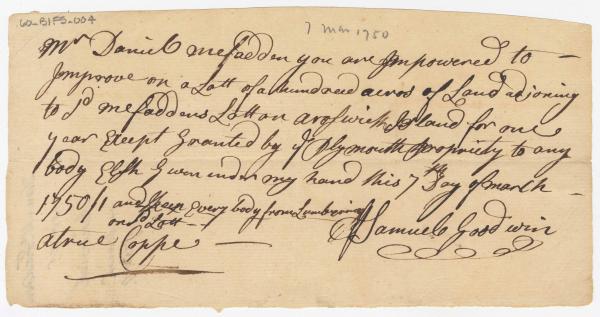 60-B1F5-004
7 Mar 1750
Mr Daniel mcfadden you are Impowered to
Improve on a Lott of a hundred acros of Land adjoining
to sd mcfaddens Lott on aroswick Island for one
year Exept Granted by ye Plymouth Propriety to any
body Elsh Given under my hand this 7th Day of march
1750/1 and Keep Every body from Lumbering
on sd Lott
Samuel Goodwin
a true Coppe